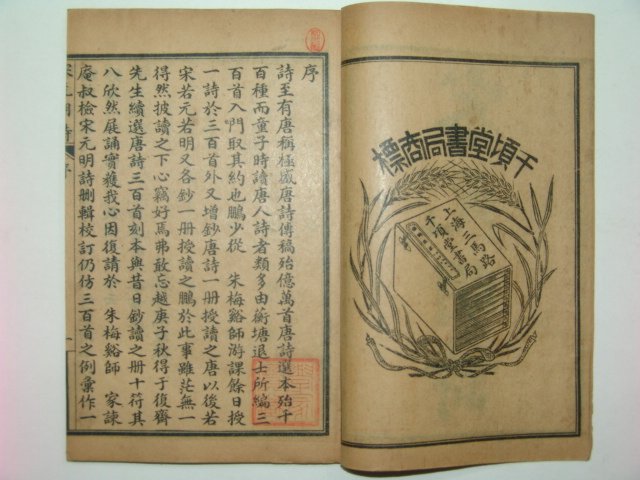 千頃堂書局商標
上海三馬路
千頃堂書局
序
詩至有唐稱極盛唐詩傳稿殆億萬首唐詩選本殆千
百種而童子時讀唐人詩者類多由蘅塘退士所編三
百首入門取其約也鵬少從　朱梅谿師游課餘日授
一詩於三百首外又增鈔唐詩一册授讀之唐以後若
宋若元若明又各鈔一册授讀之鵬於此事雖茫無一
得然披讀之下心竊好焉弗敢忘越庚子秋得于復齋
先生續選唐詩三百首刻本與昔日鈔讀之册十符其
八欣然展誦實獲我心因復請於　朱梅谿師　家諫
庵叔檢宋元明詩刪輯校訂仍仿三百首之例彙作一